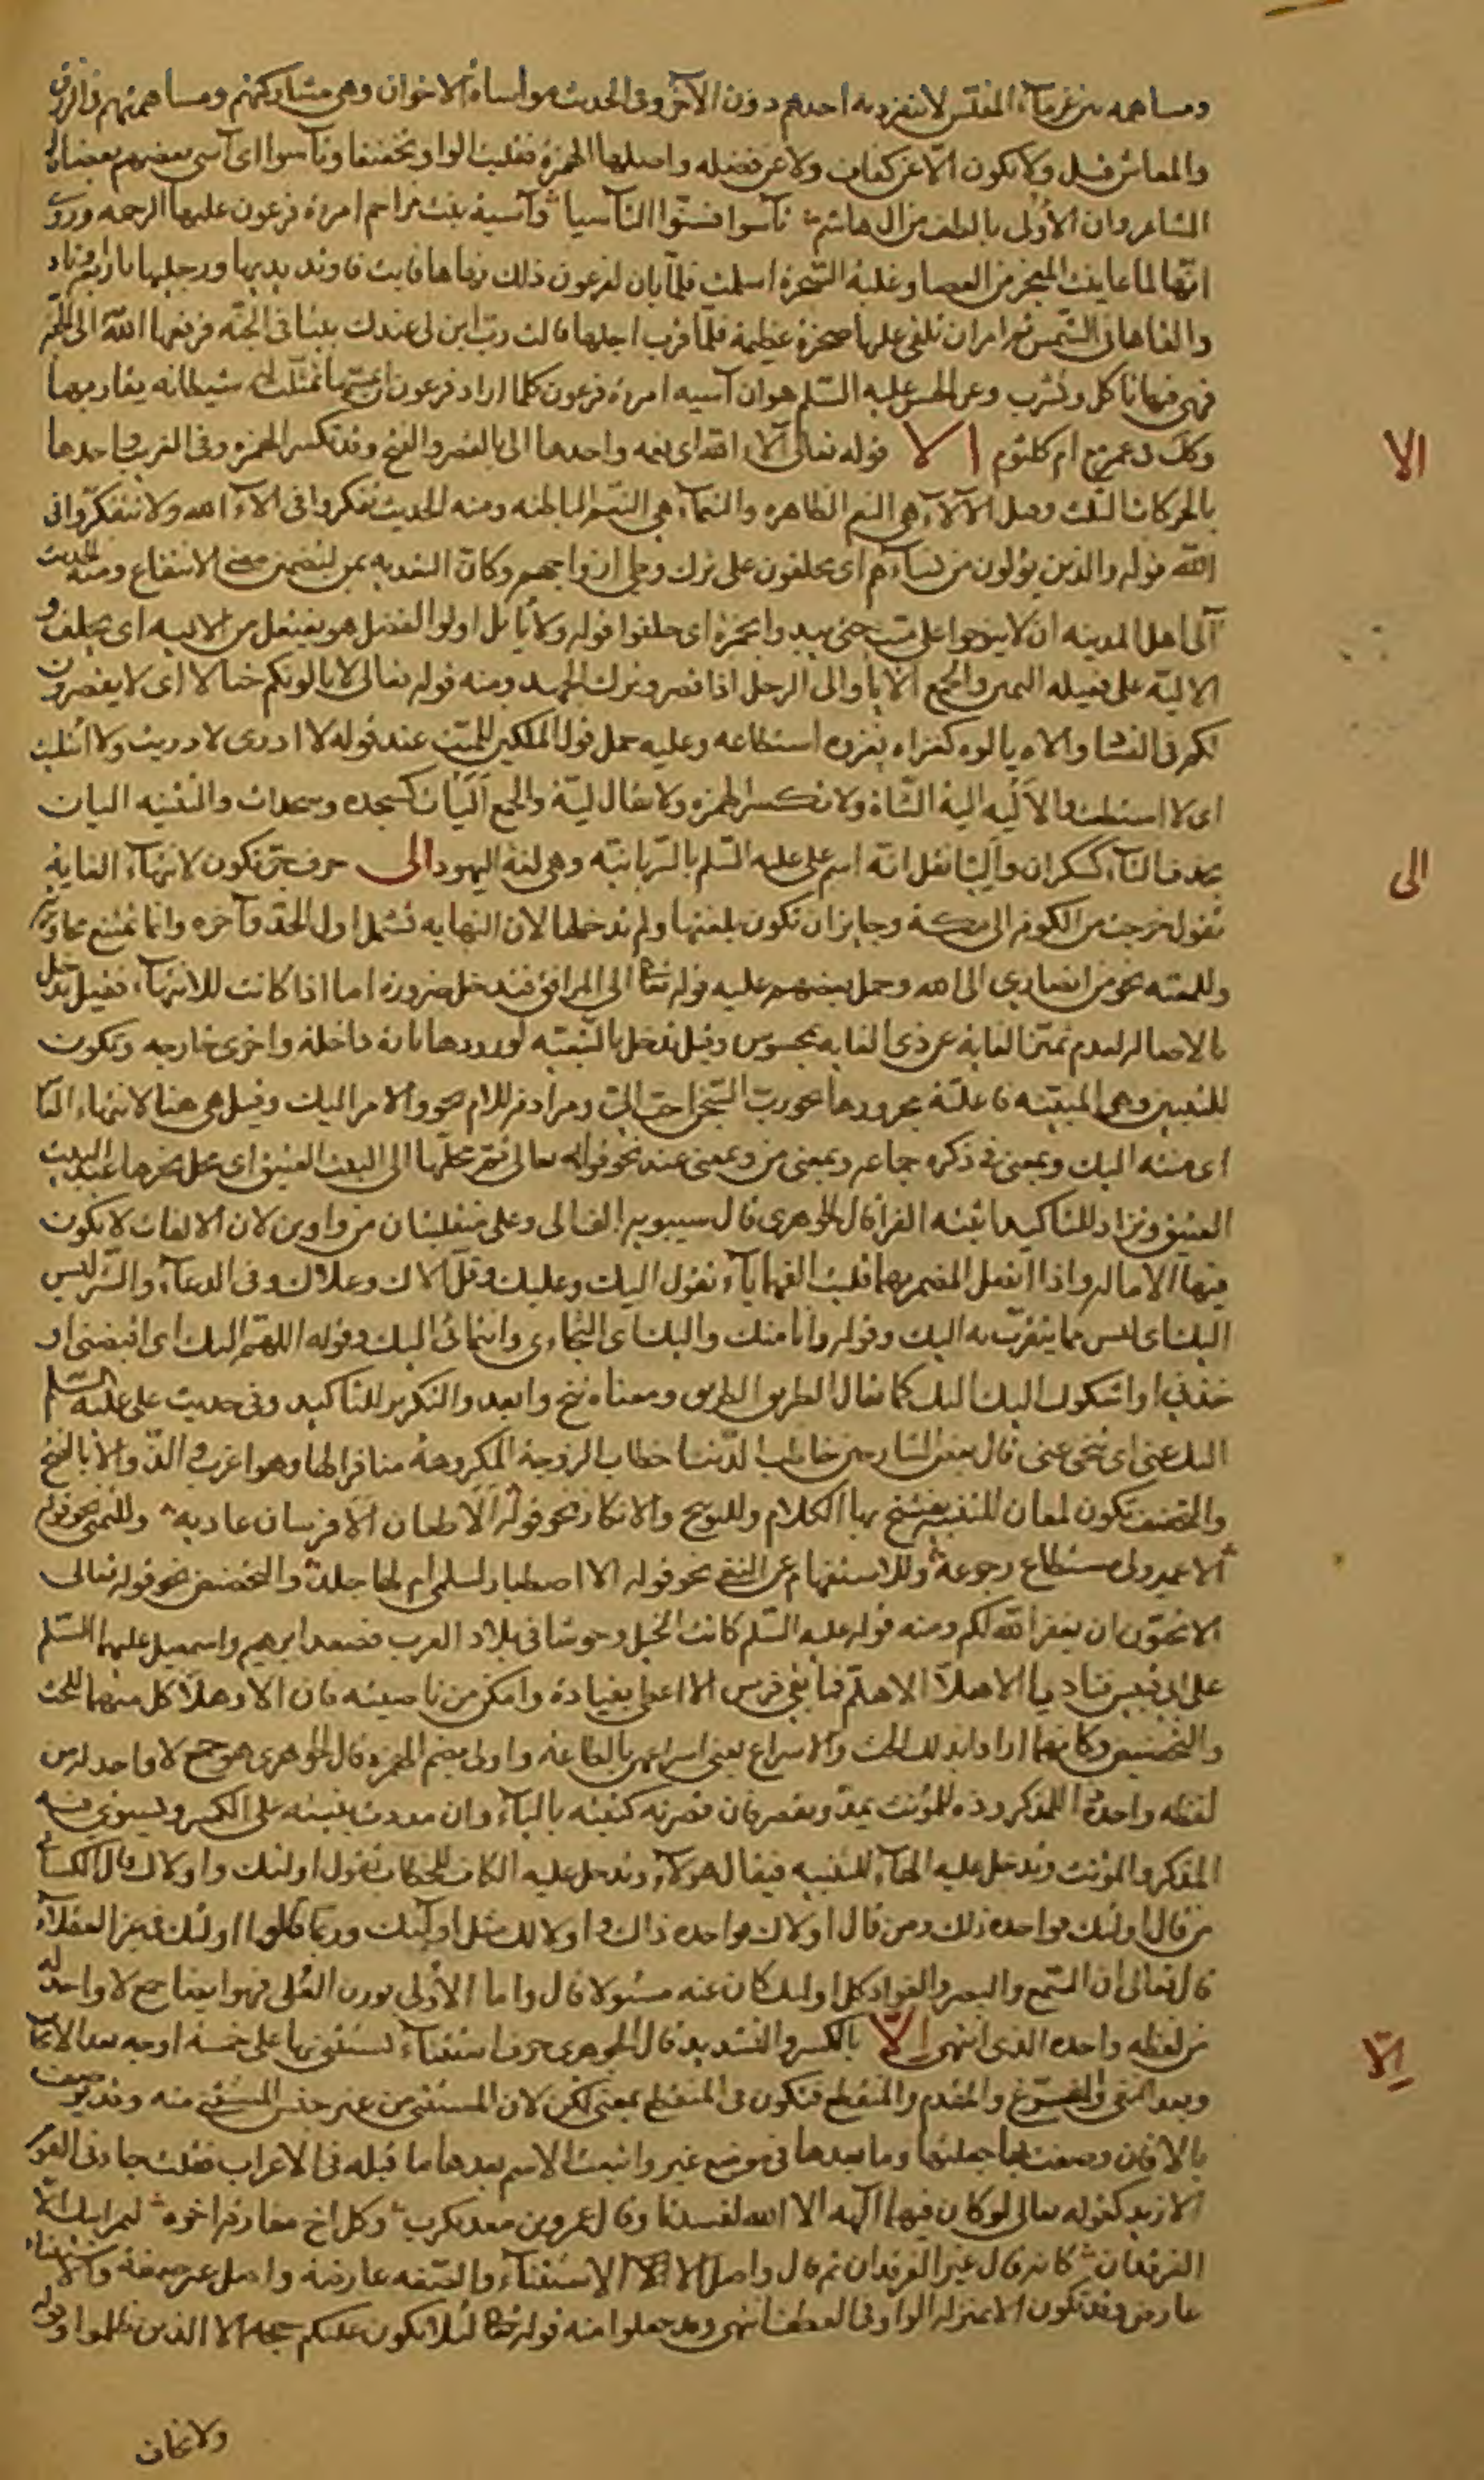 ومساهمه بين غرماء المفلس لا ينفرد به احدهم دون الآخر وفي الحديث مواساة الاخوان وهي مشاركتهم ومساهمتهم في الرزق
والمعاش قيل ولا يكون الا عن كفاف ولا عن فضله واصلها الهمزة فقلبت الواو تخفيفا وتآسوا اى آسى بعضهم بعضا قال
الشاعر وان الأولى بالطف من ال هاشم تآسوا فسنّوا التآسيا وآسية بنت مزاحم امرءة فرعون عليها الرحمه وروى
انها لما عاينت المعجز من العصا وغلبة السحرة اسلمت فلما بان لفرعون ذلك نهاها فابت فاوتد يديها ورجليها باربعة اوتاد
والقاها في الشمس ثم امر ان تلقى عليها صخرة عظيمة فلما قرب اجلها قالت رب ابن لى عندك بيتا في الجنة فرفعها الله الى الجنة
فهى فيها تاكل وتشرب وعن الحسن عليه السلم هو ان آسيه امرءة فرعون كلما اراد فرعون تمثلت له شيطانه يقاربها
وكك ام كلثوم الا قوله تعالى آلاء الله اى نعمه واحدها الى بالقصر والفتح وقد تكسر الهمزة وفى الغريب واحدها
بالحركات الثلث وقيل الآلاء هي النعم الظاهره والنعماء هي النعم الباطنه ومنه الحديث تفكروا في الآء الله ولا تتفكروا في
الله قوله والذين يؤلون من نساءهم اى يحلفون على ترك وطى ازواجهم وكان التعديه بمن لتضمين معنى الامتناع ومنه الحديث
آلى اهل المدينه ان لا ينوحوا على ميت حتى يبدوا بحمزة اى حلفوا قوله ولا يأتل اولوا الفضل هو يفتعل من الاليه اى يحلف و
الالية على فعيله اليمين والجمع الايا والى الرجل اذا قصر وترك الجهد ومنه قوله تعالى لا يالونكم خبالا اى لا يقصرون
لكم في الفساد والاه يالوه كغزاه يغزوه استطاعه وعليه حمل قول الملكين للميت عند قوله لا ادرى لا دريت ولا ائتليت
اى لا استطعت والالية الية الشاة ولا تكسر الهمزه ولا يقال لية والجمع اليات كسجده وسجدات والتثنيه اليان
بحذف التاء كسكران واليا نقل انه اسم على عليه السلم بالسريانية وهى لغة اليهود الى حرف جر تكون لانتهاء الغاية
تقول خرجت من الكوفه الى مكة وجايز ان تكون بلغتها ولم تدخلها لان النهايه تشمل اول الحد وآخره وانما تمتنع مجاوزته
وللمعيه نحو من انصارى الى الله وحمل بعضهم عليه قوله تعا الى المرافق فتدخل ضرورة اما اذا كانت للانتهاء فقيل تدخل
بالاصاله لعدم تميز الغاية عن ذى الغايه بمحسوس وقيل تدخل بالتبعيه لورودها تارة داخلة واخرى خارجه وتكون
للتبيين وهى المبينه فاعلية مجرورها نحو رب السجن احب الى ومرادفة للام نحو والامر اليك وقيل هي هنا لانتهاء الغاية
اى منته اليك وبمعنى في ذكره جماعه وبمعنى من وبمعنى عند نحو قوله تعالى ثم محلها الى البيت العتيق اى محل نحرها عند البيت
العتيق وتزاد للتاكيد اثبته الفرا قال الجوهرى قال سيبويه الف الى وعلى منقلبتان من واوين لان الالفات لا تكون
فيها الاماله واذا اتصل المضمر بهما قلبت الفهما ياء تقول اليك وعليك وقيل الاك وعلاك وفى الدعاء والشر ليس
اليك اى ليس مما يتقرب به اليك وقوله وانا منك واليك اى التجاءى وانتمائى اليك وقوله اللهم اليك اى اقبضنى او
خذنى او اشكوك اليك اليك كما يقال الطريق الطريق ومعناه تنح وابعد والتكرير للتاكيد وفى حديث على عليه السلم
اليك عنى اى تنحى عنى قال بعض الشارحين خاطب الدنيا خطاب الزوجة المكروهة منافرا لها وهو اغرب في الذم والا بالفتح
والتخفيف تكون لمعان للتنبيه يفتتح بها الكلام وللتوبيخ والانكار نحو قوله الا طعان الا فرسان عاديه وللتمنى نحو قوله
الا عمر ولى مستطاع رجوعه وللاستفهام عن النفى نحو قوله الا اصطبار لسلمى ام لها جلد والتحضيض نحو قوله تعالى
الا تحبون ان يغفر الله لكم ومنه قوله عليه السلم كانت الخيل وحوشا في بلاد العرب فصعد ابرهيم واسمعيل عليهما السلم
على ابى قبيس فناديا الا هلا الا هلم فما بقى فرس الا اعطى بقياده وامكن من ناصيته فان الا وهلا كل منهما للحث
والتحضيض وكانهما ارادا بذلك الحث والاسراع يعنى اسراعهن بالطاعة واولى بضم الهمزه قال الجوهرى هو جمع لا واحد له من
لفظه واحده ذا للمذكر وذه للمؤنث يمد ويقصر فان قصرته كتبته بالياء وان مددت بنيته على الكسر ويستوى فيه
المذكر والمونث وتدخل عليه الهاء للتنبيه فيقال هولاء وتدخل عليه الكاف للخطاب تقول اولئك واولاك قال الكسائى
من قال اولئك فواحده ذلك ومن قال اولاك فواحده ذاك واولالك مثل اولئك وربما قالوا اولئك في غير العقلاء
قال تعالى ان السمع والبصر والفواد كل اولئك كان عنه مسئولا قال واما الأولى بوزن العلى فهو ايضا جمع لا واحد له
من لفظه واحده الذى انتهى إلّا بالكسر والتشديد قال الجوهرى حرف استثناء تستثنى بها على خمسة اوجه بعد الايجاب
وبعد النفى والمفرغ والمقدم والمنقطع فتكون في المنقطع بمعنى لكن لان المستثنى من غير جنس المستثنى منه وقد يوصف
بالا فان وصفت بها جعلتها وما بعدها في موضع غير واتبعت الاسم بعدها ما قبله في الاعراب فقلت جاءنى القوم
الا زيد كقوله تعالى لو كان فيهما آلهة الا الله لفسدتا وقال عمرو بن معديكرب وكل اخ مفارقه اخوه لعمر ابيك الا
الفرقدان كانه قال غير الفرقدان ثم قال واصل الا الاستثناء والصفه عارضة واصل غير صفة والاستثناء
عارض وقد تكون الا بمنزله الواو في العطف انتهى وقد جعلوا منه قوله تعا لئلا يكون عليكم حجة الا الذين ظلموا وقوله
ولا تخاف
الا
الى
إلّا